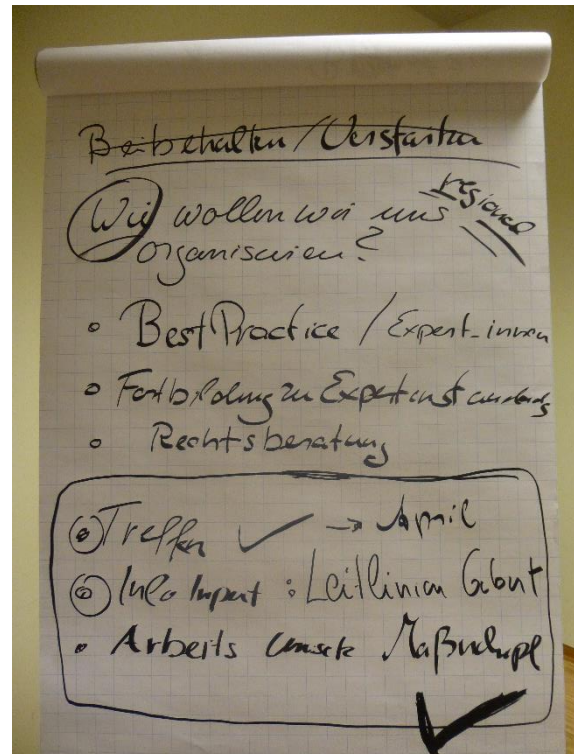 Beibehalten / Verstärken
Wie wollen wir uns regional
organisieren?
• Best Practice / Expert_innen
• Fortbildung zu Expertinstandards
• Rechtsberatung
• Treffen ✓ → April
• Info Input : Leitlinien Geburt
• Arbeits